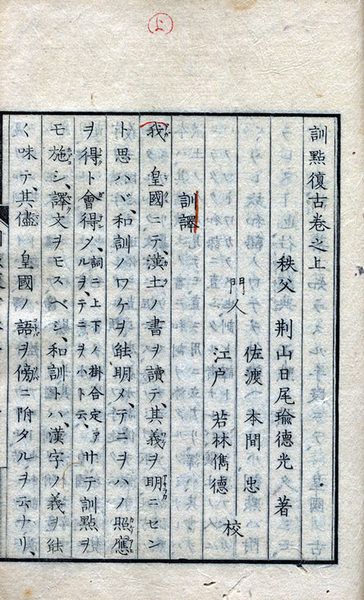 上
訓點復古卷之上
秩父 荊山日尾瑜德光 著
佐渡 本間 忠
門人 校
江戸 若林儁德
訓譯
我 皇國ニテ、漢土ノ書ヲ讀テ其義ヲ明ニセン
ト思ハヾ、和訓ノワケヲ能明メ、テニヲハノ照應
ヲ得ト會得 詞ニ上下ノ掛合定ア ルヲテニヲハト云、 サテ訓點ヲ
モ施シ、譯文ヲモスベシ、和訓トハ、漢字ノ義ヲ能
く味テ、其儘 皇國ノ語ヲ傍ニ附タルヲ云ナリ、